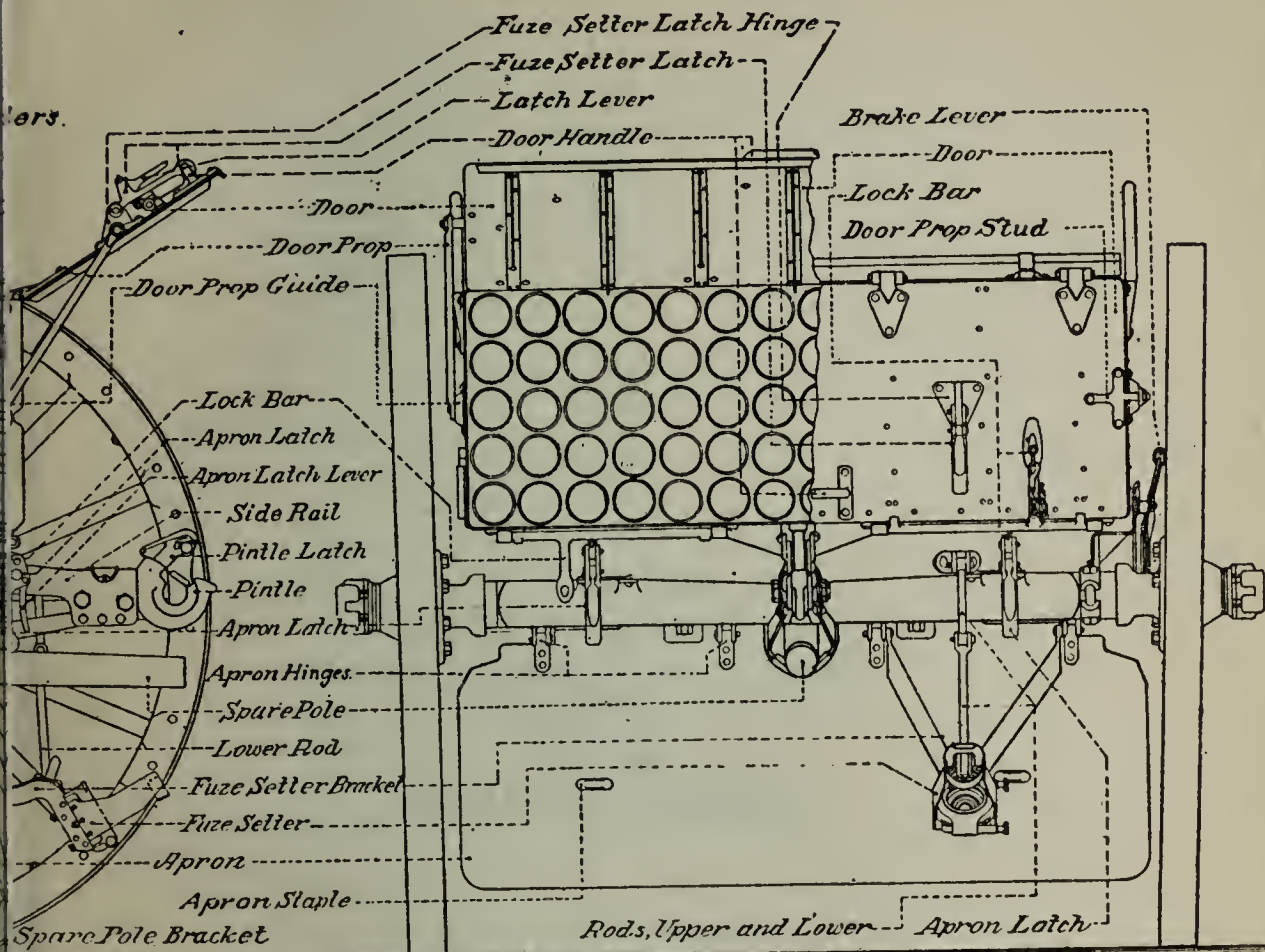 Fuze Setter Latch Hinge
Fuze Setter Latch
Latch Lever
Door Handle
Brake Lever
Door
Lock Bar
Door Prop Stud
Door
Door Prop
Door Prop Guide
Lock Bar
Apron Latch
Apron Latch Lever
Side Rail
Pintle Latch
Pintle
Apron Latch
Apron Hinges
Spare Pole
Lower Rod
Fuze Setter Bracket
Fuze Setter
Apron
Apron Staple
Rods, Upper and Lower
Apron Latch
Spare Pole Bracket